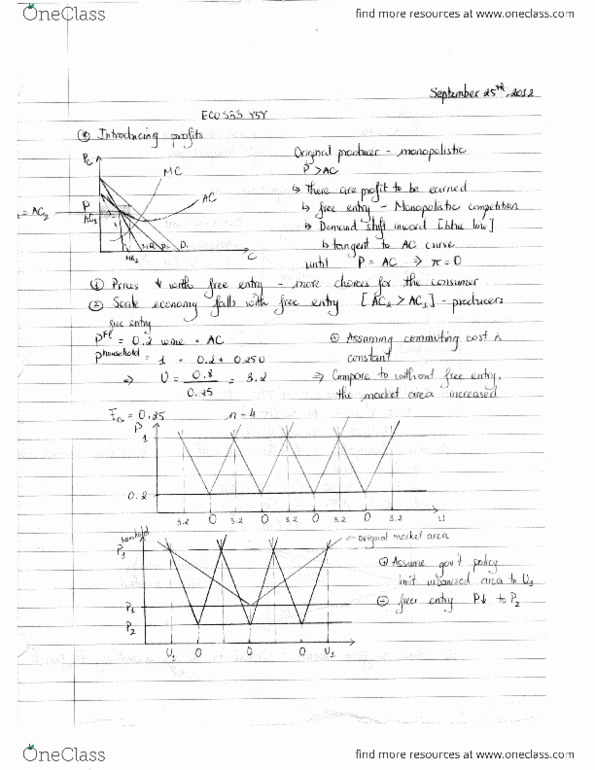 OneClass
find more resources at www.oneclass.com
September 25th, 2012
ECO 333 Y5Y
③ Introducing profits
Original producer - monopolistic
P > AC
↳ There are profit to be earned
↳ free entry - Monopolistic competition
↳ Demand shift inward [blue line]
↳ tangent to AC curve
until P = AC ⇒ π = 0
MC
AC
P
= AC2
MR2
C
① Prices ↓ with free entry - more choices for the consumer
② Scale economy falls with free entry [AC2 > AC1] - producers
free entry
= 0.2 = AC
P household = 1 = 0.2 + 0.25U
⇒ U = 0.8 / 0.25 = 3.2
① Assuming commuting cost is
constant
⇒ Compare to without free entry,
the market area increased
= 0.25
n = 4
P
1
0.2
3.2 0 3.2 0 3.2 0 3.2 0 3.2 U
household
original market area
P1
P2
U1 0 0 0 U1
① Assume gov't policy
limit urbanized area to U1
free entry P↓ to P2
OneClass
find more resources at www.oneclass.com